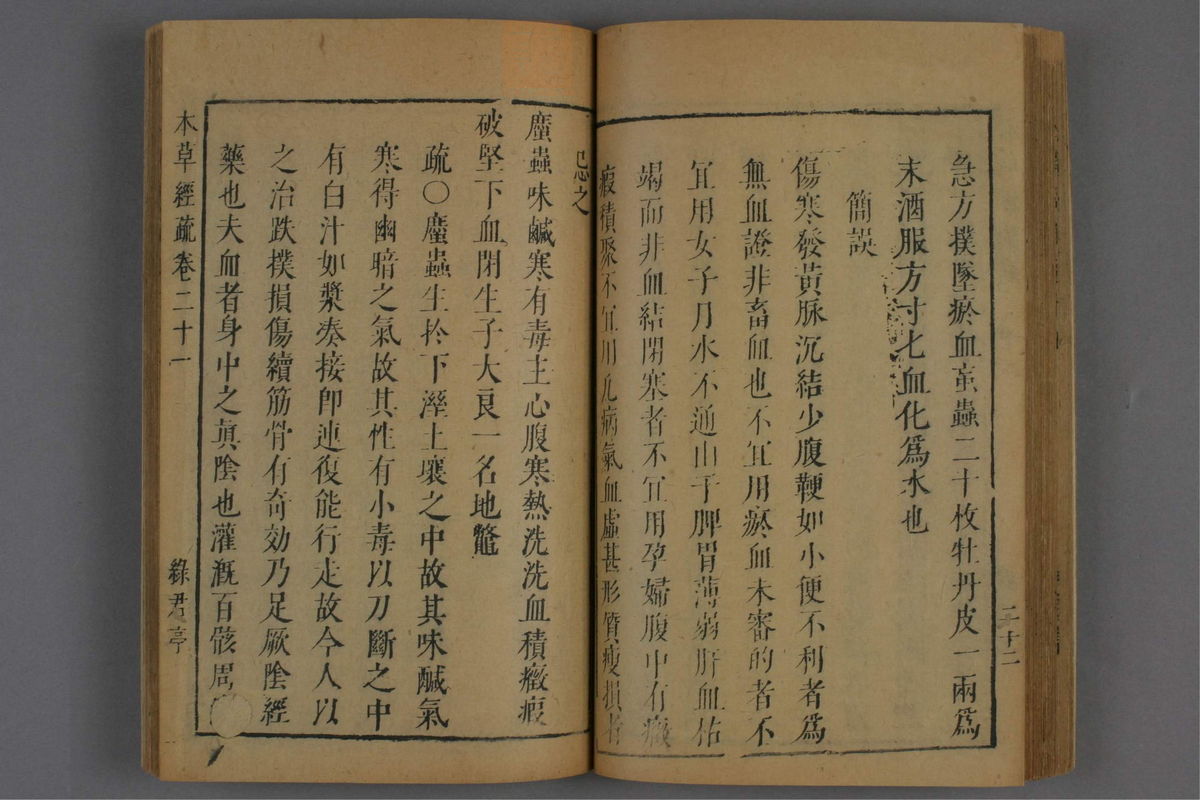 急方撲墜瘀血䖟蟲二十枚牡丹皮一兩爲
末酒服方寸匕血化爲水也
簡誤
傷寒發黃脉沉結少腹鞕如小便不利者爲
無血證非畜血也不宜用瘀血未審的者不
宜用女子月水不通由于脾胃薄弱肝血枯
竭而非血結閉塞者不宜用孕婦腹中有癥
瘕積聚不宜用凡病氣血虛甚形質瘦損者
忌之
二十二
䗪蟲味鹹寒有毒主心腹寒熱洗洗血積癥瘕
破堅下血閉生子大良一名地鼈
疏○䗪蟲生於下溼土壤之中故其味鹹氣
寒得幽暗之氣故其性有小毒以刀斷之中
有白汁如漿凑接卽連復能行走故今人以
之治跌撲損傷續筋骨有奇効乃足厥陰經
藥也夫血者身中之眞陰也灌漑百骸周
本草經疏卷二十一
綠君亭